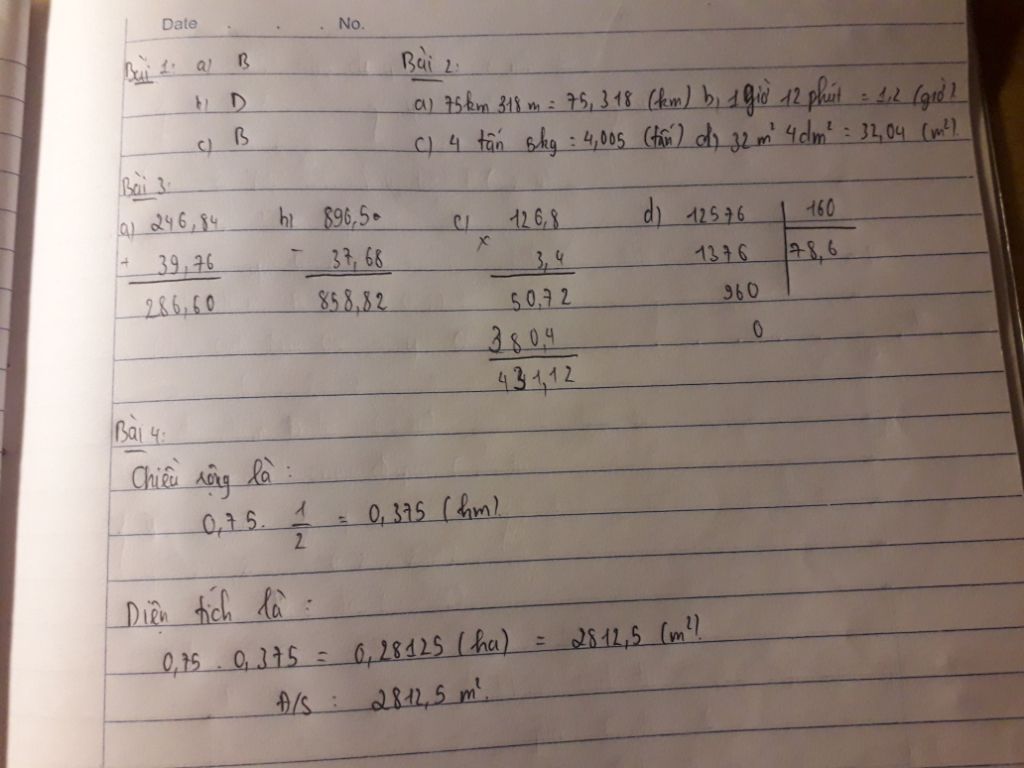 Date . . . No.
Bài 1: a) B
b) D
c) B
Bài 2:
a) 75km 318m = 75,318 (km) b, 1giờ 12 phút = 1,2 (giờ)
c) 4 tấn 5kg = 4,005 (tấn) d) 32 m² 4dm² = 32,04 (m²)
Bài 3:
a) 246,84
+ 39,76
286,60
b) 896,50
- 37,68
858,82
c) 126,8
x 3,4
50,72
380,4
431,12
d) 12576 160
1376 78,6
960
0
Bài 4:
Chiều rộng là:
0,75. 1/2 = 0,375 (hm)
Diện tích là:
0,75 . 0,375 = 0,28125 (ha) = 2812,5 (m²)
Đ/S : 2812,5 m².